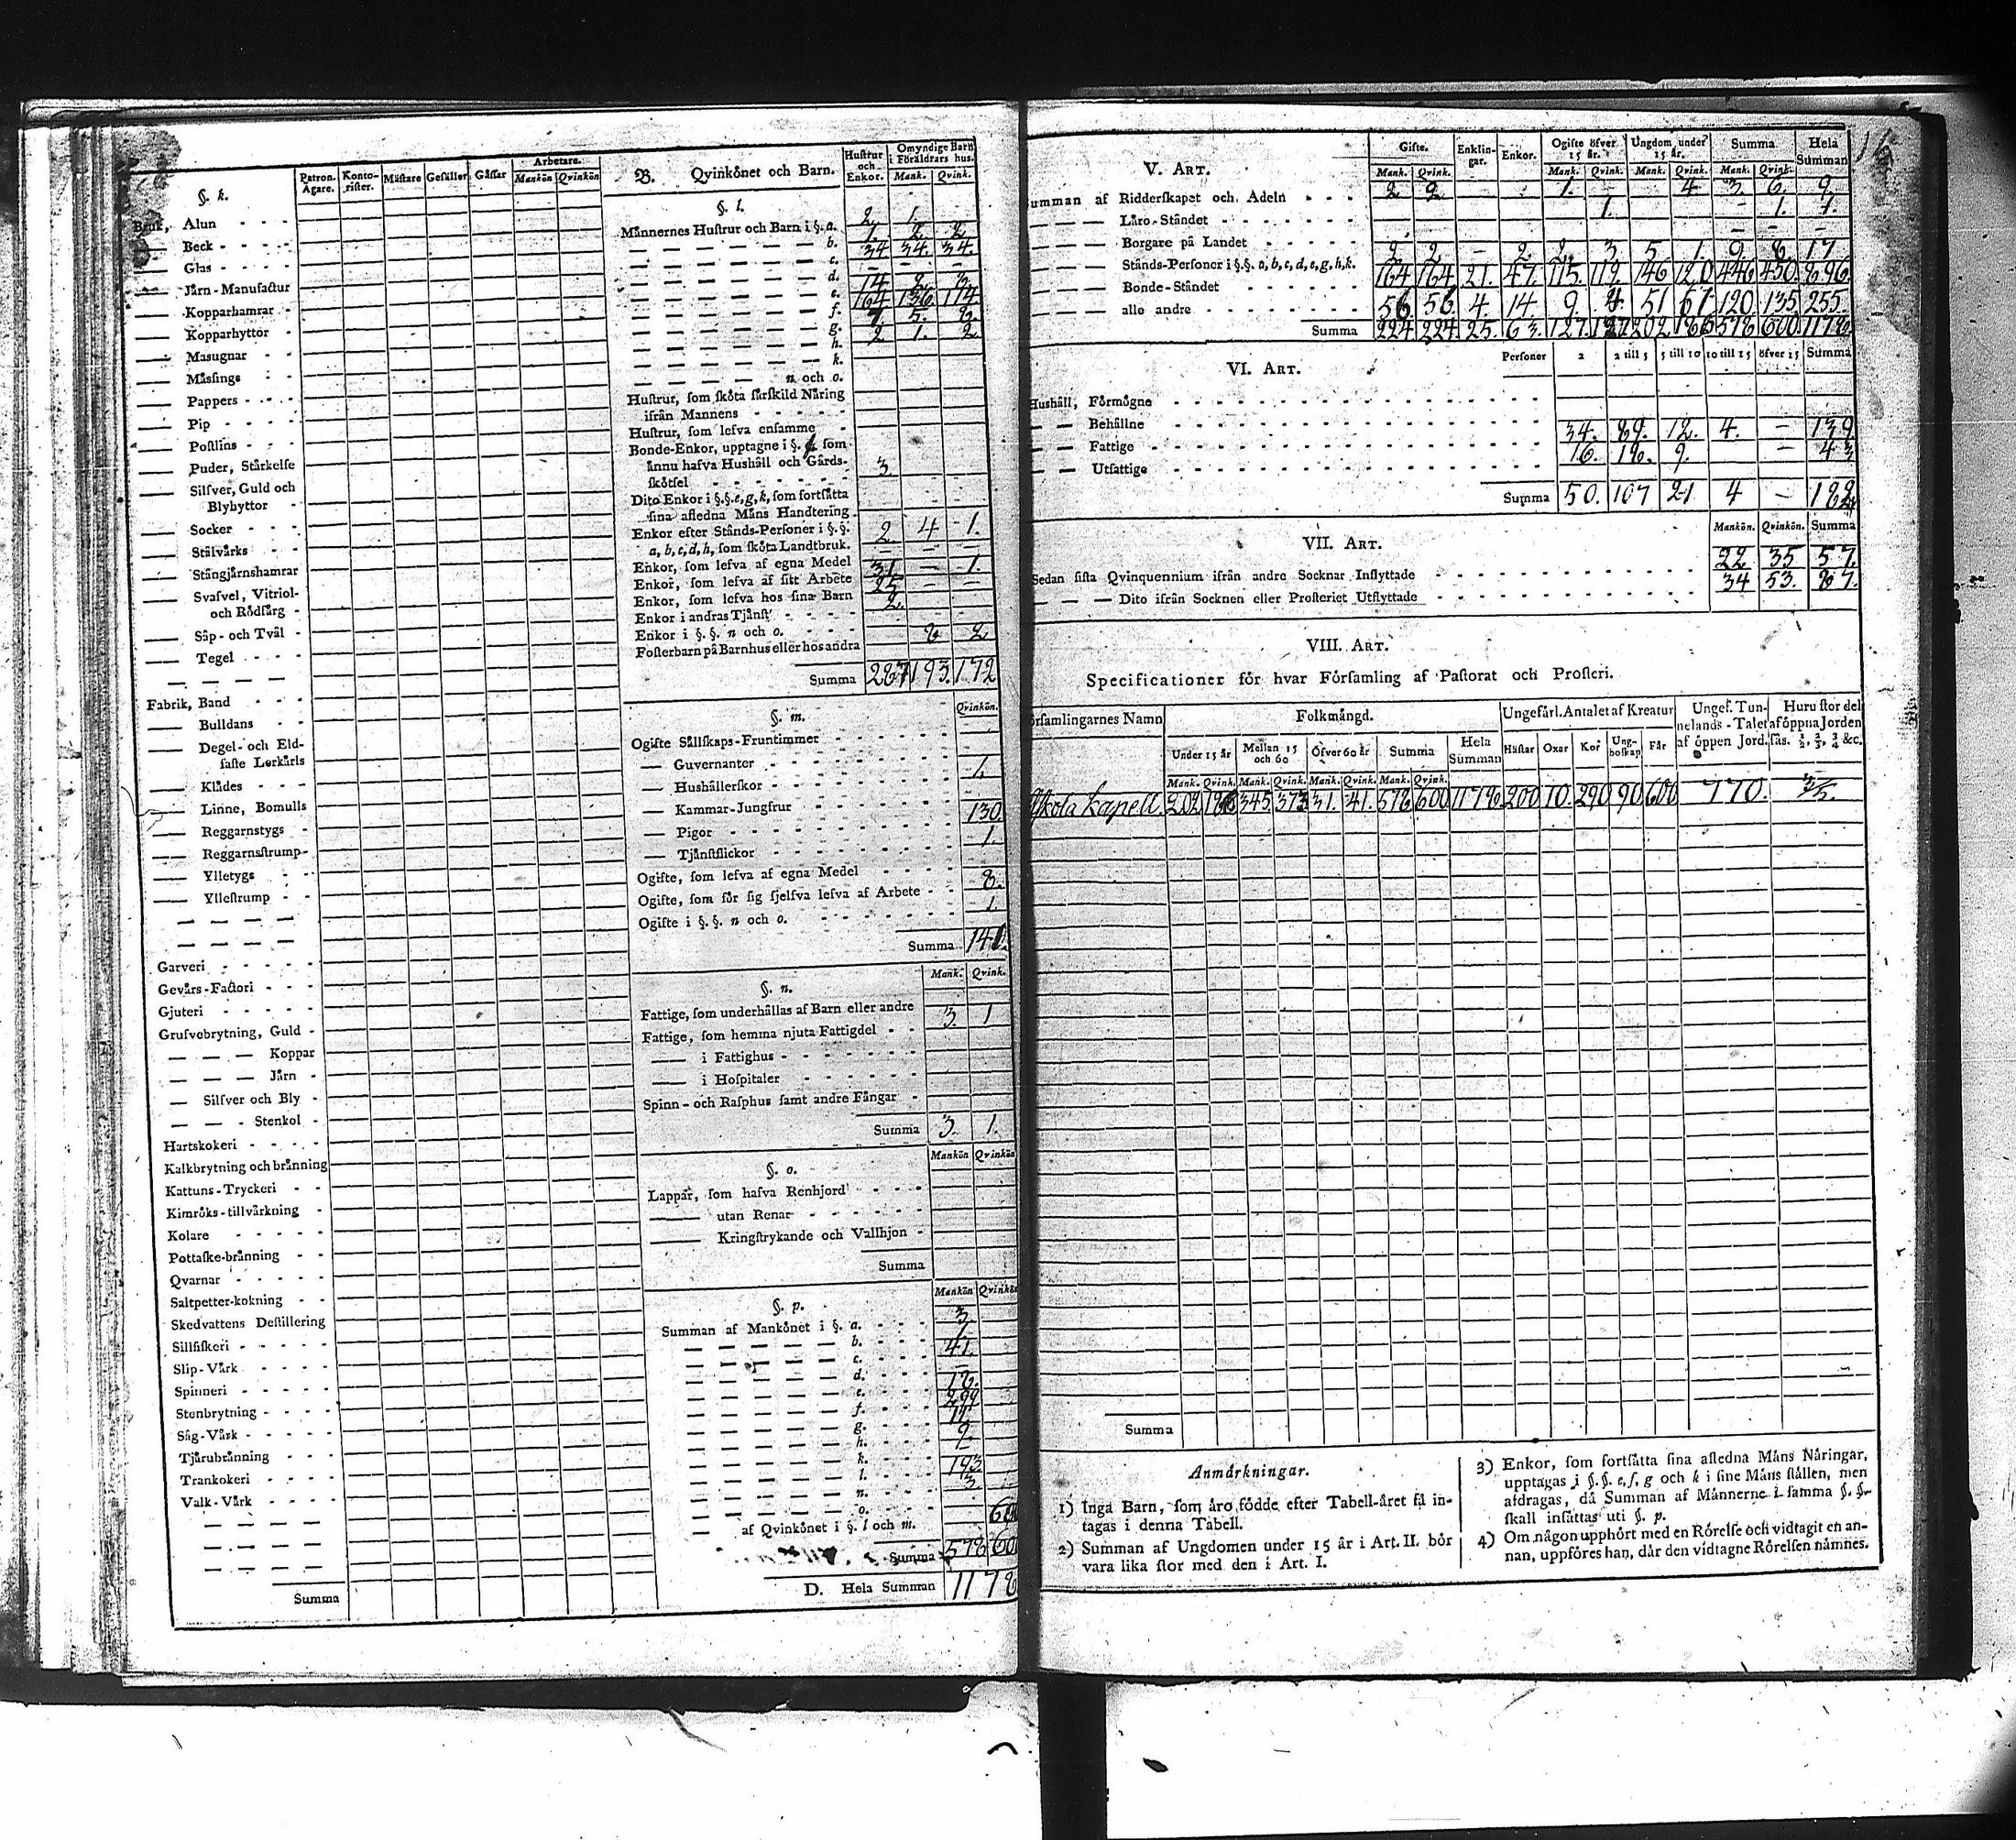 §. k.
Patron. Ägare. Konto-rister. Mästare Gesäller Gåssar Arbetare. Mankön Qvinkön
Bruk, Alun
Beck
Glas
Järn-Manufactur
Kopparhamrar
Kopparhyttor
Masugnar
Måssings
Pappers
Pip
Postlins
Puder, Stårkelse
Silfver, Guld och
Blyhyttor
Socker
Stålvårks
Stångjårnshamrar
Svafvel, Vitriol-
och Rödfårg
Såp- och Tvål
Tegel
Fabrik, Band
Bulldans
Degel- och Eld-
faste Lerkårls
Klådes
Linne, Bomulls
Reggarnstygs
Reggarnsstrump
Ylletygs
Yllestrump
Garveri
Gevårs-Factori
Gjuteri
Grufvobrytning, Guld
Koppar
Jårn
Silfver och Bly
Stenkol
Hartskokeri
Kalkbrytning och brånning
Kattuns-Tryckeri
Kimröks-tillvårkning
Kolare
Pottaske-brånning
Qvarnar
Saltpetter-kokning
Skedvattens Destillering
Sillfiskeri
Slip-Vårk
Spinneri
Stenbrytning
Såg-Vårk
Tjårubrånning
Trankokeri
Valk-Vårk
Summa
B. Qvinkönet och Barn. Hustrur och Enkor. Omyndige Barn i Föräldrars hus. Mank. Qvink.
§. l.
Månnernes Hustrur och Barn i §. a. 2. 1.
b. 1. 2. 2
c. 34 34. 34.
d.
e. 14 8.
f. 164 136 114
g. 5.
h. 2 1. 2
k.
n och o.
Hustrur, som sköta särskild Näring
ifrån Mannens
Hustrur, som lefva ensamme
Bonde-Enkor, upptagne i §. som
ånnu hafva Hushåll och Gårds-
skötsel 3
Dito Enkor i §.§. e, g, k, som fortsåtta
sina afledna Måns Handtering
Enkor efter Stånds-Personer i §.§.
a, b, c, d, h, som sköta Landtbruk. 2 4 1.
Enkor, som lefva af egna Medel
Enkor, som lefva af sitt Arbete 31 – 1.
Enkor, som lefva hos sina Barn 25 – –
Enkor i andras Tjånst 2
Enkor i §.§. n och o.
Fosterbarn på Barnhus eller hos andra 2
Summa 287 193. 172
§. m. Qvinkön.
Ogifte Sållskaps-Fruntimmer
Guvernanter
Hushållerskor 1.
Kammar-Jungfrur
Pigor 130
Tjånstflickor 1.
Ogifte, som lefva af egna Medel
Ogifte, som för sig sjelfva lefva af Arbete 8.
Ogifte i §.§. n och o. 1
Summa 141.
§. n. Mank. Qvink.
Fattige, som underhållas af Barn eller andre 3 1
Fattige, som hemma njuta Fattigdel
i Fattighus
i Hospitaler
Spinn- och Rasphus samt andre Fångar
Summa 3. 1.
§. o. Mankön Qvinkön
Lappar, som hafva Renhjord
utan Renar
Kringstrykande och Vallhjon
Summa
§. p. Mankön Qvinkön
Summan af Mankönet i §. a. 3.
b. 1
c. 41.
d. –
e. 18.
f. 299
g. 11
h. 9
k.
l. 193
n. 3
o.
af Qvinkönet i §. l och m.
Summa 578 600
D. Hela Summan 1178
V. Art. Gifte. Mank. Qvink. Enklin-gar. Enkor. Ogifte öfver 15 år. Mank. Qvink. Ungdom under 15 år. Mank. Qvink. Summa Mank. Qvink. Hela Summan
Summan af Ridderskapet och Adeln 2 2 1. 4 3. 6. 9.
Låro-Ståndet 1. 1. 1.
Borgare på Landet – – –
Stånds-Personer i §.§. a, b, c, d, e, g, h, k. 2 2 – 2 2. 3 5 1. 9. 8. 17
Bonde-Ståndet 164 164 21. 47. 115. 119. 146 120 446 450. 896
alle andre 56 56. 4. 14. 9. 4 51 61 120. 135. 255.
Summa 224 224. 25. 63. 127. 127 202. 186 578 600 1178.
VI. Art. Personer 2 2 till 5 5 till 10 10 till 15 öfver 15 Summa
Hushåll, Förmögne
Behållne
Fattige 34. 89. 12. 4. – 139
Utfattige 16. 18. 9. – 43
Summa 50. 107 21 4 – 182
VII. Art. Mankön. Qvinkön. Summa
Sedan sista Qvinquennium ifrån andre Socknar Inflyttade 22 35 57.
Dito ifrån Socknen eller Prosteriet Utflyttade 34 53. 87.
VIII. Art.
Specificationer för hvar Församling af Pastorat och Prosteri.
Församlingarnes Namn Folkmängd. Ungefärl. Antalet af Kreatur Ungef. Tun-nelands-Talet af öppen Jord. Huru stor del af öppna Jorden sås. 1/2, 2/3, 3/4 &c.
Under 15 år Mellan 15 och 60 Öfver 60 år Summa Hela Summan Håstar Oxar Kor Ung-boskap Får
Mank. Qvink. Mank. Qvink. Mank. Qvink. Mank. Qvink.
Kapell. 202 186 345. 373 31. 41. 578 600 1178. 200 10. 290 90 600 770.
Summa
Anmårkningar.
1) Inga Barn, som åro födde efter Tabell-året få in-
tagas i denna Tabell.
2) Summan af Ungdomen under 15 år i Art. II. bör
vara lika stor med den i Art. I.
3) Enkor, som fortsåtta sina afledna Måns Nåringar,
upptagas i §.§. e, f, g och k i sine Måns stållen, men
afdragas, då Summan af Månnerne i samma §.§.
skall insåttas uti §. p.
4) Om någon upphört med en Rörelse och vidtagit en an-
nan, uppföres han, dår den vidtagne Rörelsen nåmnes.